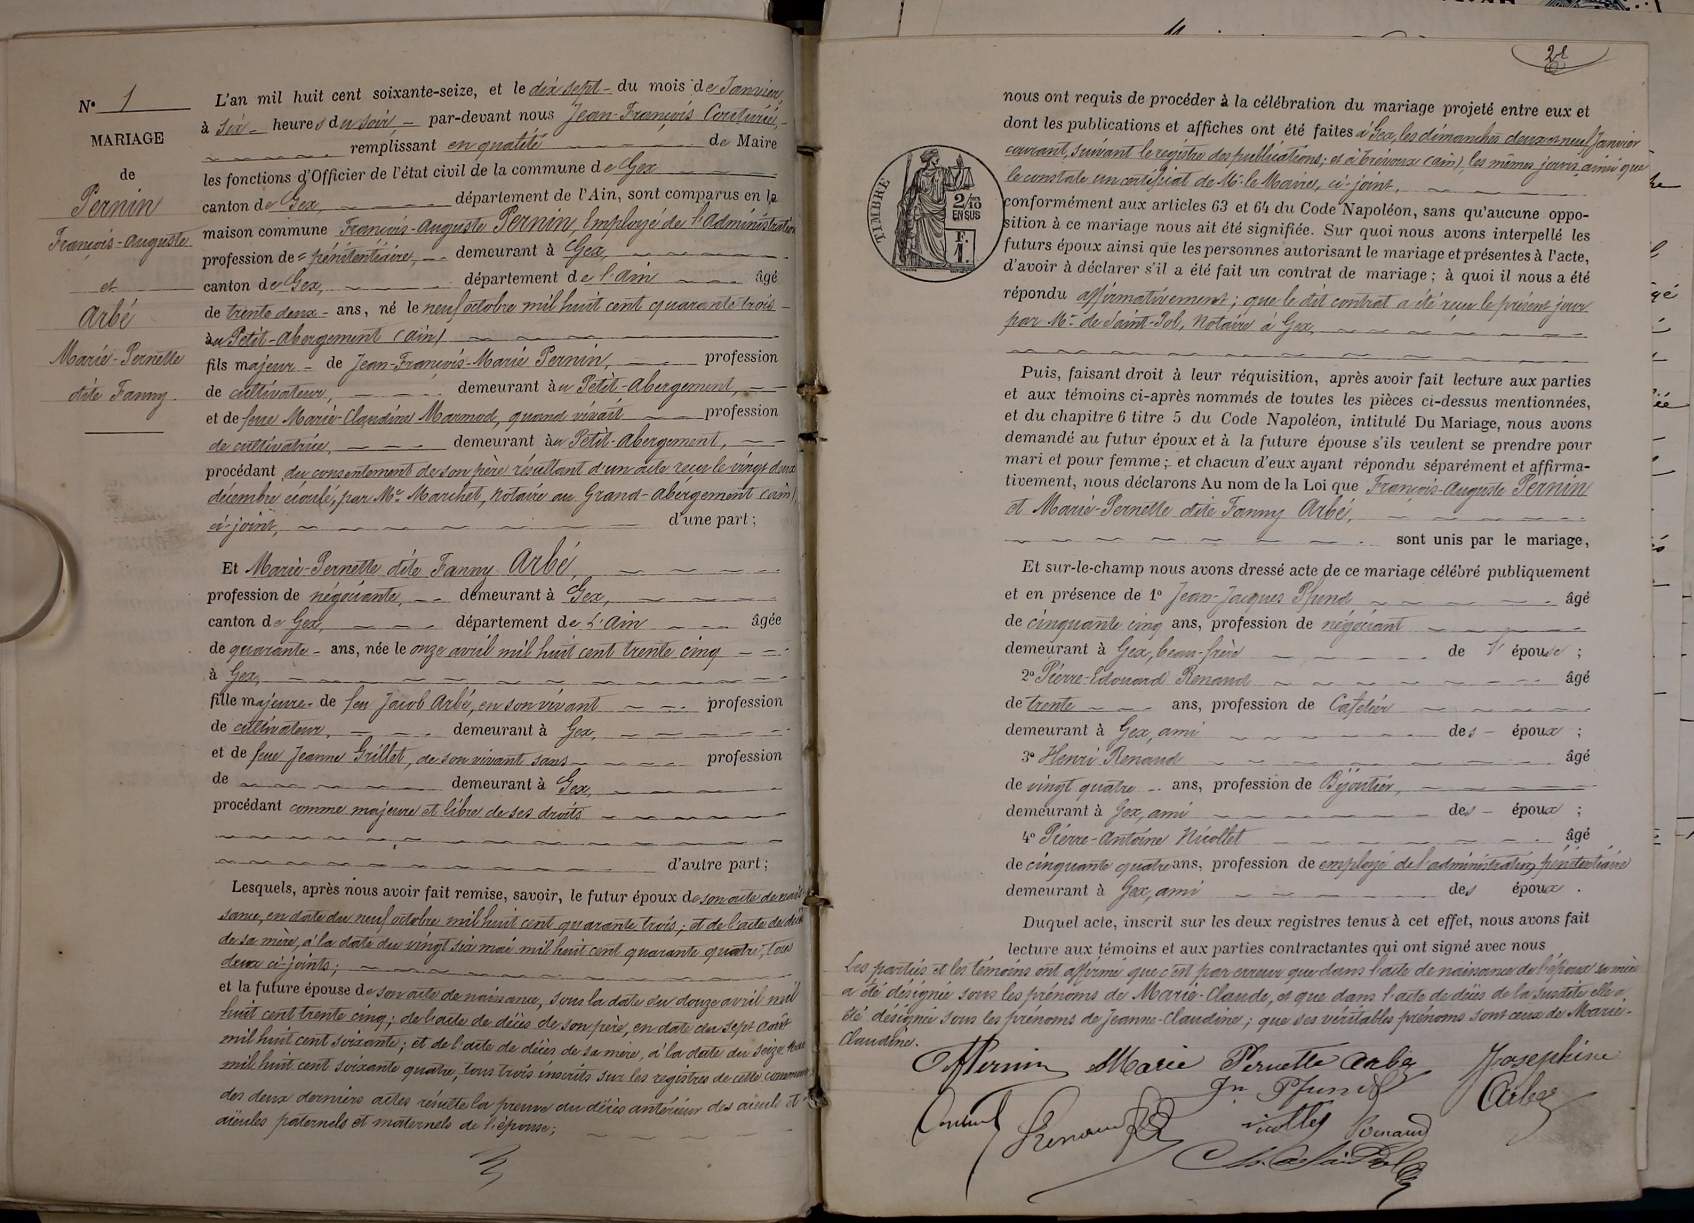 N° 1
MARIAGE
de
Pernin
François-Auguste
et
Arbé
Marie-Pernette
dite Fanny.
L'an mil huit cent soixante-seize, et le dix sept du mois de Janvier
à six heures du soir par-devant nous Jean-François
remplissant en qualité de Maire
les fonctions d'Officier de l'état civil de la commune de Gex
canton de Gex, département de l'Ain, sont comparus en la
maison commune François-Auguste Pernin, Employé de l'Administration
profession de pénitentiaire, demeurant à Gex,
canton de Gex, département de l'Ain âgé
de trente deux ans, né le neuf octobre mil huit cent quarante trois
au Petit-Abergement (Ain)
fils majeur de Jean-François-Marie Pernin, profession
de cultivateur, demeurant au Petit-Abergement,
et de feue Marie-Claudine Marmod, quand vivait profession
de cultivatrice, demeurant au Petit-Abergement,
procédant du consentement de son père résultant d'un acte reçu le vingt deux
décembre écoulé, par Me Marchet, notaire au Grand-Abergement (Ain),
ci-joint, d'une part;
Et Marie-Pernette dite Fanny Arbé,
profession de négociante, demeurant à Gex,
canton de Gex, département de L'Ain âgée
de quarante ans, née le onze avril mil huit cent trente cinq
à Gex,
fille majeure de feu Jacob Arbé, en son vivant profession
de cultivateur, demeurant à Gex,
et de feue Jeanne Grillet, de son vivant sans profession
de demeurant à Gex,
procédant comme majeure et libre de ses droits
d'autre part;
Lesquels, après nous avoir fait remise, savoir, le futur époux de son acte de nais-
sance, en date du neuf octobre mil huit cent quarante trois; et de l'acte de décès
de sa mère, à la date du vingt six mai mil huit cent quarante quatre, tous
deux ci-joints;
et la future épouse de son acte de naissance, sous la date du douze avril mil
huit cent trente cinq; de l'acte de décès de son père, en date du sept août
mil huit cent soixante; et de l'acte de décès de sa mère, à la date du seize
mil huit cent soixante quatre, tous trois inscrits sur les registres de cette commune
des deux derniers actes résulte la preuve du décès antérieur des aïeuls et
aïeules paternels et maternels de l'épouse;
TIMBRE
2/10
EN SUS
F.
1.
nous ont requis de procéder à la célébration du mariage projeté entre eux et
dont les publications et affiches ont été faites à Gex, les dimanches deux et neuf Janvier
courant, suivant le registre des publications; et à Trévoux (Ain), les mêmes jours, ainsi que
le constate un certificat de Mr le Maire, ci-joint,
conformément aux articles 63 et 64 du Code Napoléon, sans qu'aucune oppo-
sition à ce mariage nous ait été signifiée. Sur quoi nous avons interpellé les
futurs époux ainsi que les personnes autorisant le mariage et présentes à l'acte,
d'avoir à déclarer s'il a été fait un contrat de mariage; à quoi il nous a été
répondu affirmativement; que le dit contrat a été reçu le présent jour
par Me de Saint-Pol, Notaire à Gex,
Puis, faisant droit à leur réquisition, après avoir fait lecture aux parties
et aux témoins ci-après nommés de toutes les pièces ci-dessus mentionnées,
et du chapitre 6 titre 5 du Code Napoléon, intitulé Du Mariage, nous avons
demandé au futur époux et à la future épouse s'ils veulent se prendre pour
mari et pour femme; et chacun d'eux ayant répondu séparément et affirma-
tivement, nous déclarons Au nom de la Loi que François-Auguste Pernin
et Marie-Pernette dite Fanny Arbé,
sont unis par le mariage,
Et sur-le-champ nous avons dressé acte de ce mariage célébré publiquement
et en présence de 1° Jean-Jacques Pfund âgé
de cinquante cinq ans, profession de négociant
demeurant à Gex, beau-frère de l'épouse;
2° Pierre-Edouard Renaud âgé
de trente ans, profession de Cafetier
demeurant à Gex, ami des époux;
3° Henri Renaud âgé
de vingt quatre ans, profession de Bijoutier,
demeurant à Gex, ami des époux;
4° Pierre-Antoine Nicollet âgé
de cinquante quatre ans, profession de employé de l'administration pénitentiaire
demeurant à Gex, ami des époux.
Duquel acte, inscrit sur les deux registres tenus à cet effet, nous avons fait
lecture aux témoins et aux parties contractantes qui ont signé avec nous
Les parties et les témoins ont affirmé que c'est par erreur que dans l'acte de naissance de l'époux sa mère
a été désignée sous les prénoms de Marie-Claude, et que dans l'acte de décès de la susdite elle a
été désignée sous les prénoms de Jeanne-Claudine; que ses véritables prénoms sont ceux de Marie-
Claudine.
Pernin Marie Pernette Arbé Josephine
Jn Pfund Arbé
Renaud Renaud